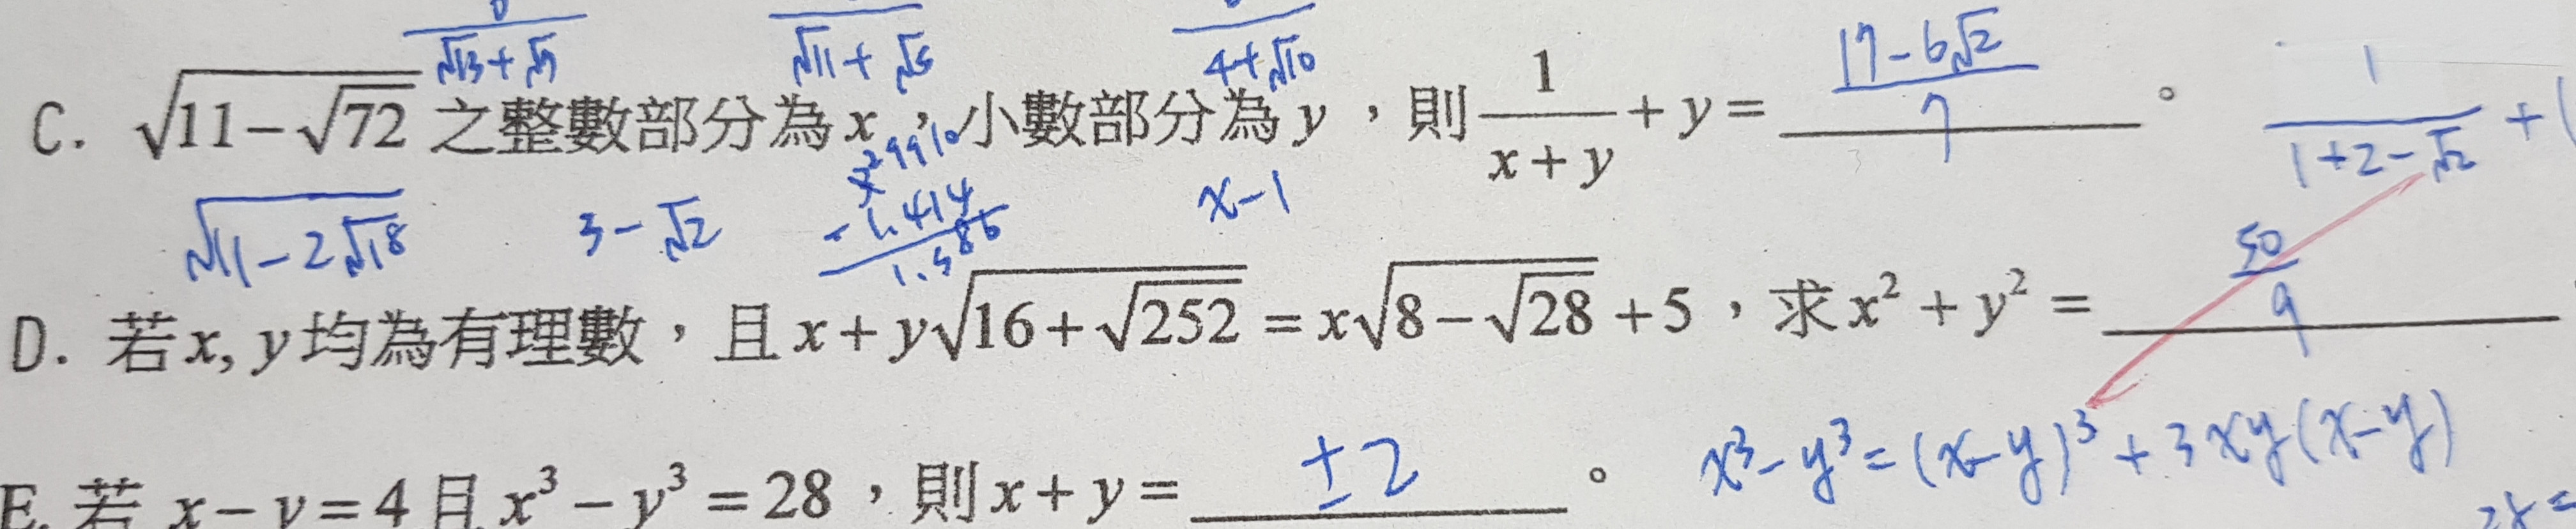 √13+√7 √11+√5 4+√10
C. √(11-√72) 之整數部分為 x，小數部分為 y，則 1/(x+y) + y = (17-6√2)/7 。 1/(1+2-√2) + (
√(11-2√18) 3-√2 -1.414 1.586 x-1
D. 若 x, y 均為有理數，且 x + y√(16+√252) = x√(8-√28) + 5，求 x² + y² = 50/9
E. 若 x-y=4 且 x³-y³=28，則 x+y= ±2 。 x³-y³=(x-y)³+3xy(x-y)